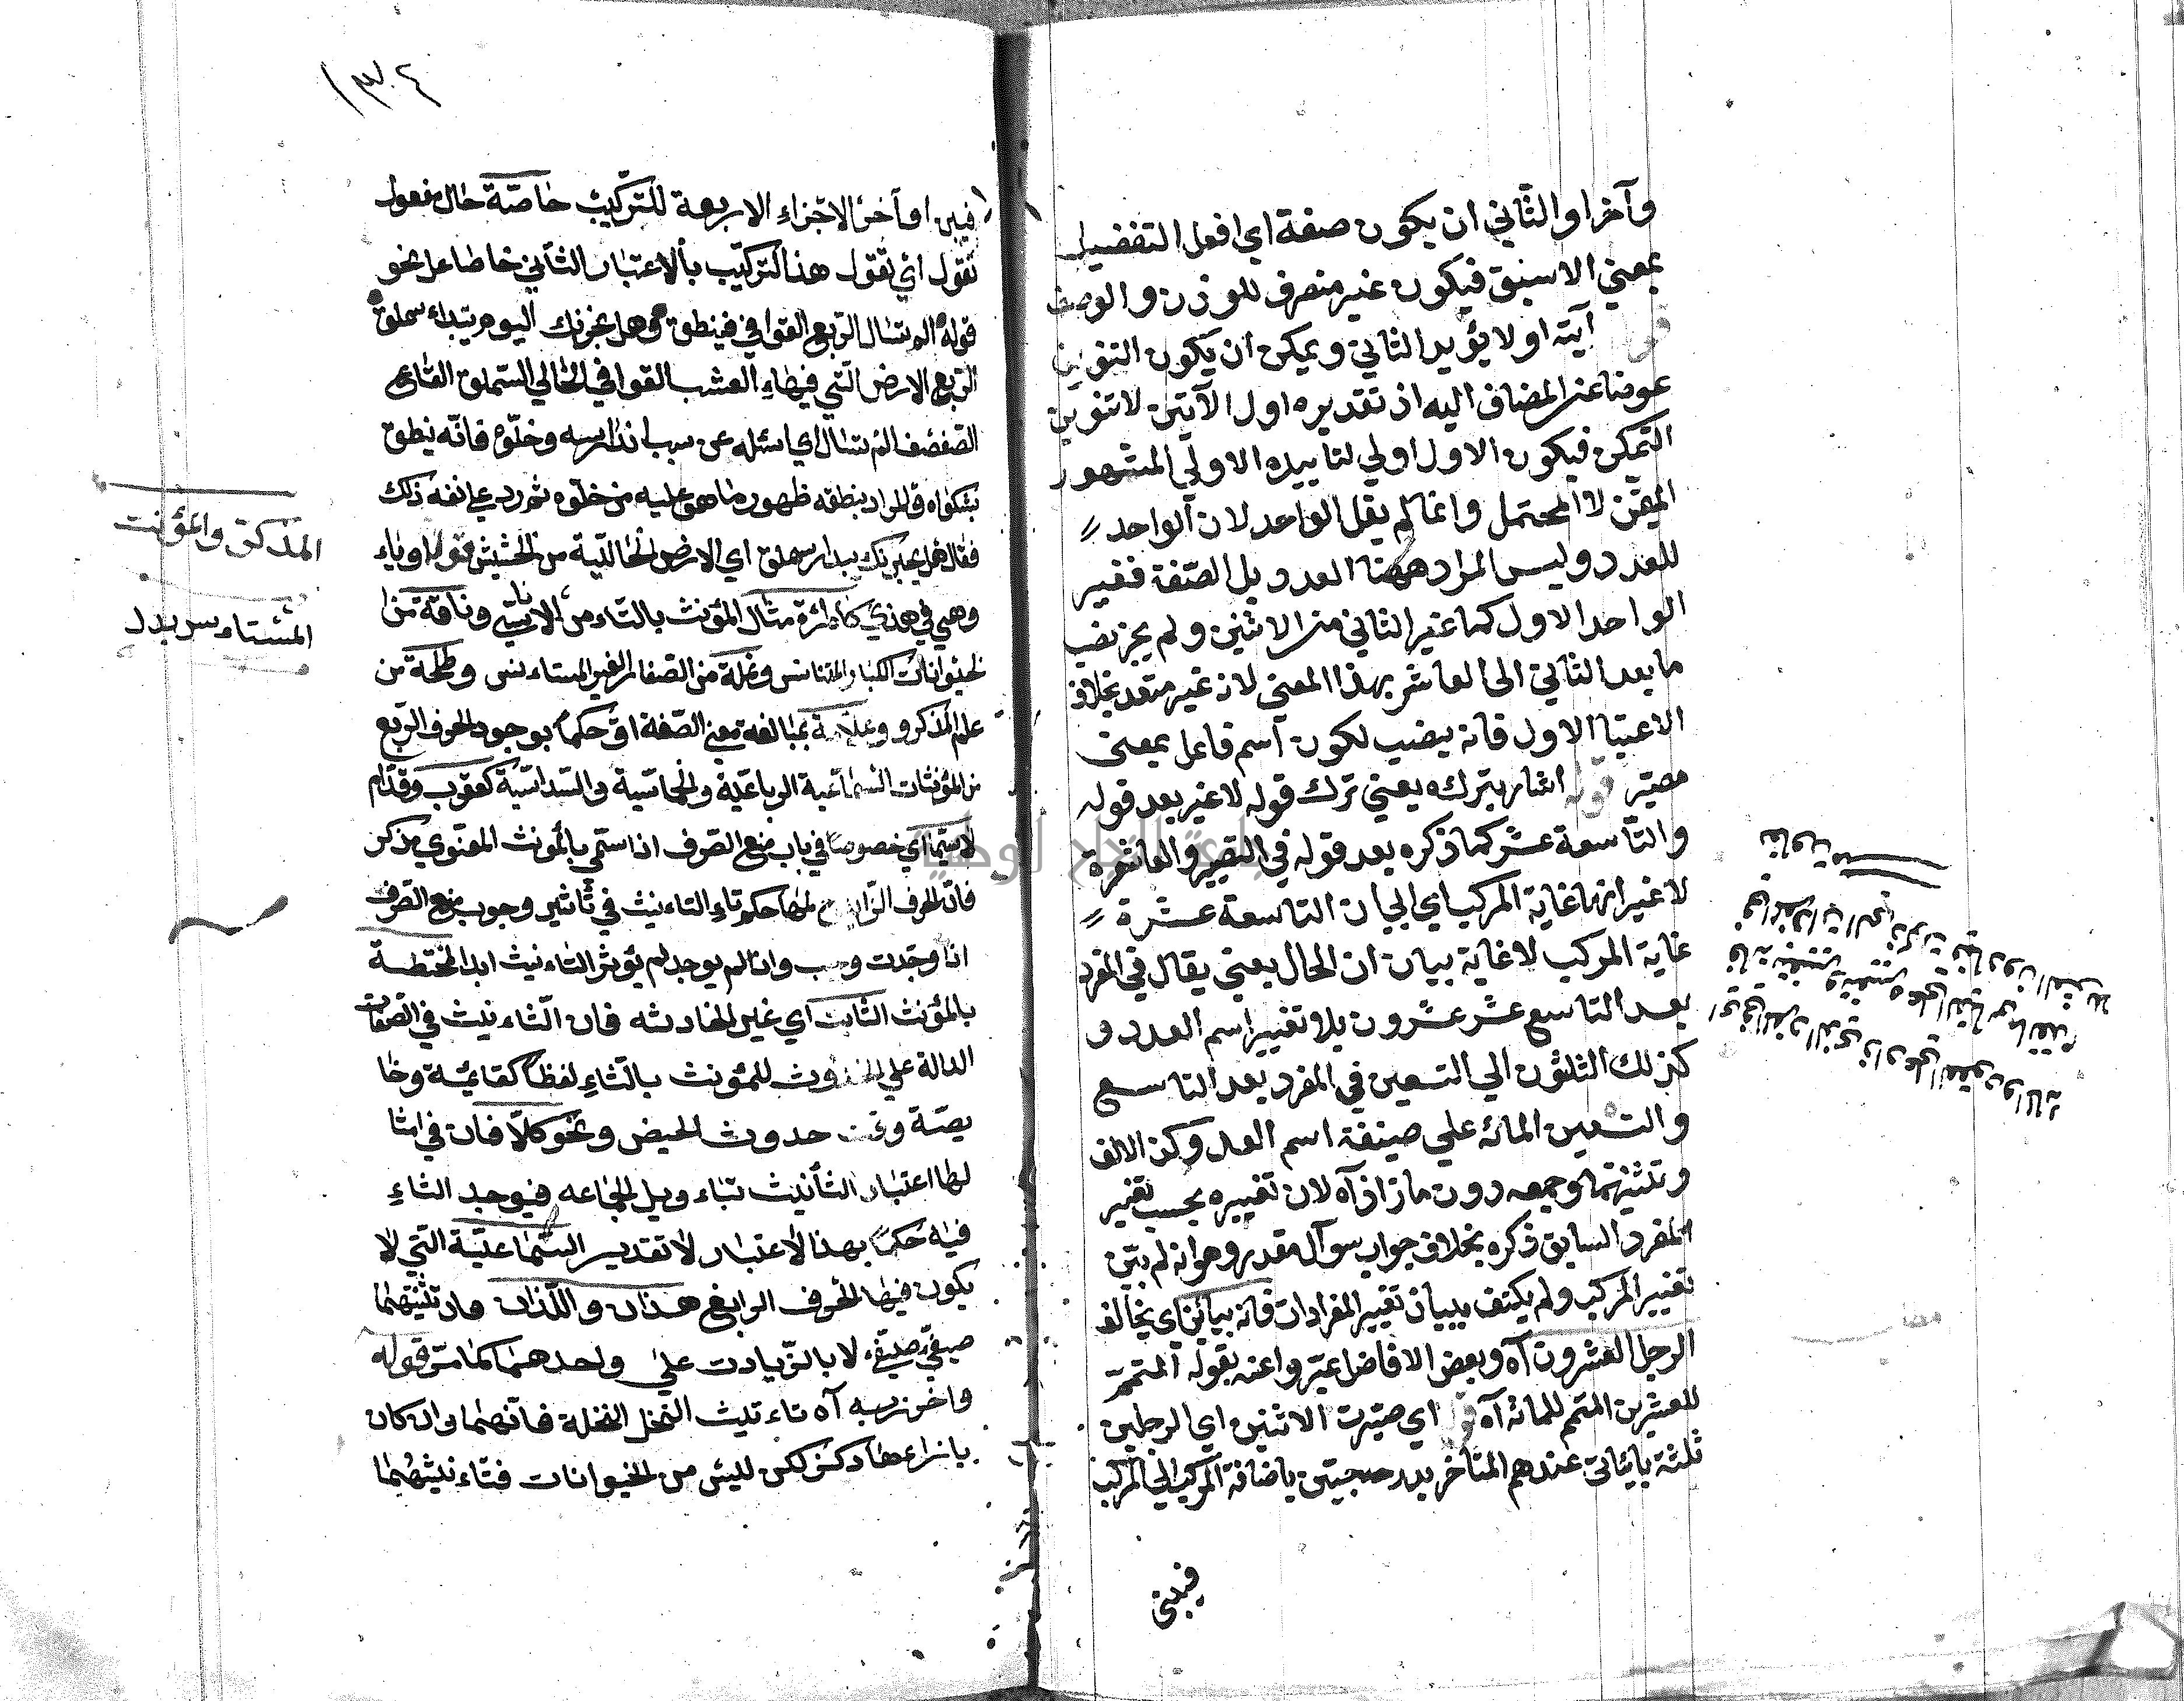 وآخرا والثاني ان يكون صفة اي افعل التفضيل
بمعني الاسبق فيكون غير منصرف للوزن والوصف
آيته اولا يؤيد الثاني ويمكن ان يكون التنوين
عوضا عن المضاف اليه اذ تقديره اول الآتين لا تنوين
التمكن فيكون الاول اولي لتاييده الاولي المشهور
المتيقن لا المحتمل وانما لم يقل الواحد لان الواحد
للعدد وليس المراد ههنا العدد بل الصفة فغير
الواحد الاول كما غير الثاني من الاثنين ولم يجز نصب
ما بعد الثاني الى العاشر بهذا المعنى لانه غير متعد بخلاف
الاعتبا الاول فانه ينصب لكون اسم فاعل بمعنى
مصير قوله اشار بتركه يعني ترك قوله لا غير بعد قوله
والتاسعة عشر كما ذكره بعد قوله في التصيير والعاشرة
لا غير انها غاية المركب اي الي بيان التاسعة عشرة
غاية المركب لا غاية بيان ان الحال يعني يقال في المفرد
بعد التاسع عشر عشرون بلا تغيير اسم العدد و
كذلك الثلثون الي التسعين في المفرد بعد التاسع
والتسعين المائه علي صيغة اسم العدد وكذا الالف
وتثنيتهما وجمعه دون ما زاد آه لان تغييره بحسب تغير
المفرد السابق ذكره بخلاف جواب سوآل مقدر وهو انه لم بين
تغيير المركب ولم يكتف ببيان تغيير المفرادات فانه بيائن اي يخالف
الرجل العشرون آه وبعض الافاضل عبروا عنه بقوله المتمم
للعشرين المتمم للمائة آه قوله اي صيرت الاثنين اي الرجلين
ثلثة يا يتاتي عندهم المتاخر بدرجتين باضافة المركب الي المركب
فيبني
١٣٠٤
فيبن او آخر الاجزاء الاربعة للتركيب خاصة حال مفعول
تقول اي تقول هذا التركيب بالاعتبار الثاني خاطا على نحو
قوله الم تسال الربع القوافي فينطق وهل يخبرنك اليوم بيداء سملق
الربع الارض التي فيها العشب القوافي الخالي السملق القاع
الصفصف الم تسال اي اسئله عن سبب اندراسه وخلوه فانه ينطق
بشكواه والمراد بنطقه ظهور ما هو عليه من خلوه ثم رد علي نفه ذلك
فقال هل يخبرنك بيدا رسملق اي الارض الخالية من الحشيش قوله او ياء
وهي في هذي كامراة مثال المؤنث بالتاء من الاناسي وناقة من
لحيوانات الكبار المتناس ونملة من الصغار الغير المستاءنس وطلحة من
علم المذكر وعلامة بمبالغه معني الصفة او حكما بوجود الحرف الربع
من المؤنثات السماعية الرباعية والخماسية والسداسية كعقرب وقدام
لاسيما اي خصوصا في باب منع الصرف اذا سمي بالمونث المعنوي مذكر
فان الحرف الرابع لها حكم تاء التاءنيث في تاثير وجوب منع الصرف
اذا وجدت وجب وان لم يوجد لم يؤثر التاءنيث ابدا المختصة
بالمؤنث الثابت اي غير الحادثه فان التاءنيث في الصفات
الدالة علي الحدوث للمؤنث بالتاء لفظا كقائمة وحا
يضة وقت حدوث الحيض ونحو كلا فان في امثا
لها اعتبار التأنيث بتاء ويل الجماعه فيوجد التاء
فيه حكما بهذا الاعتبار لا تقدير السماعية التي لا
يكون فيها الحرف الرابع هذان واللذان فان تثنيتهما
صيغي صيغة لا بالزيادت علي واحدهما كما مر قوله
واخر زيه آه تاء نيث النخل النخلة فانهما وان كان
بازاءها ذكر لكن لليس من الحيوانات فتاء نيثهما
المذكر والمؤنث